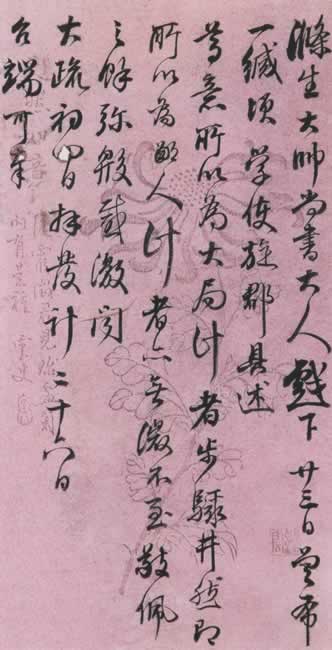 滌生大帥尚書大人戲下廿三日曾布
一緘頃學使旋郡具述
尊意所以為大局計者步驟井然即
所以為鄙人計者亦無微不至敬佩
之餘彌殷感激閱
大疏初四日拜發計二十六日
台端可奉